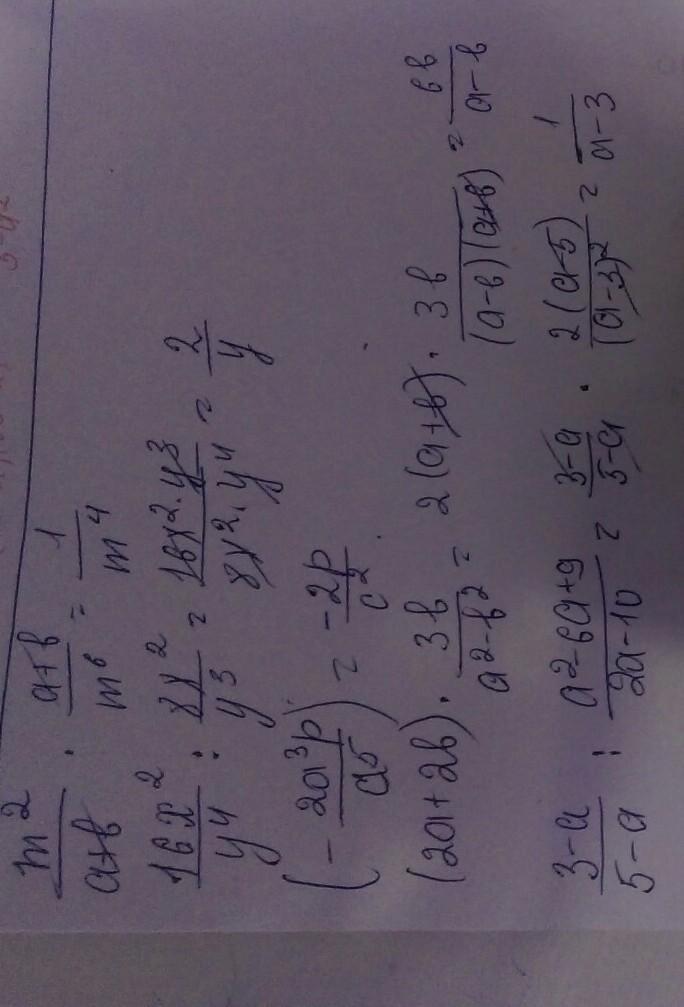 m²/(a+b) · (a+b)/m⁶ = 1/m⁴
16x²/y⁴ : 8x²/y³ = 16x²·y³/8x²·y⁴ = 2/y
(-2a³p/a5) = -2p/c²
(2a+2b) · 3b/(a²-b²) = 2(a+b) · 3b/((a-b)(a+b)) = 6b/(a-b)
(3-a)/(5-a) : (a²-6a+9)/(2a-10) = (3-a)/(5-a) · 2(a-5)/(a-3)² = 1/(a-3)